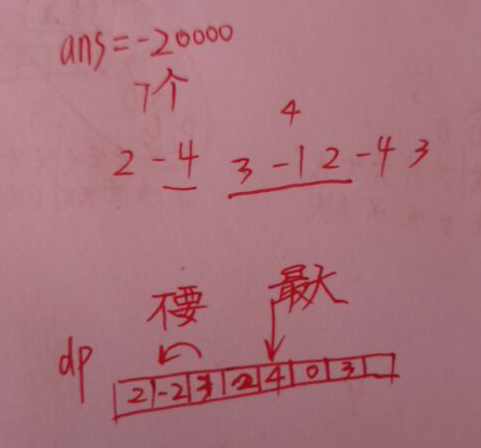 ans=-20000
7个
4
2 -4 3 -1 2 -4 3
不要 最大
dp 2 -2 3 2 4 0 3